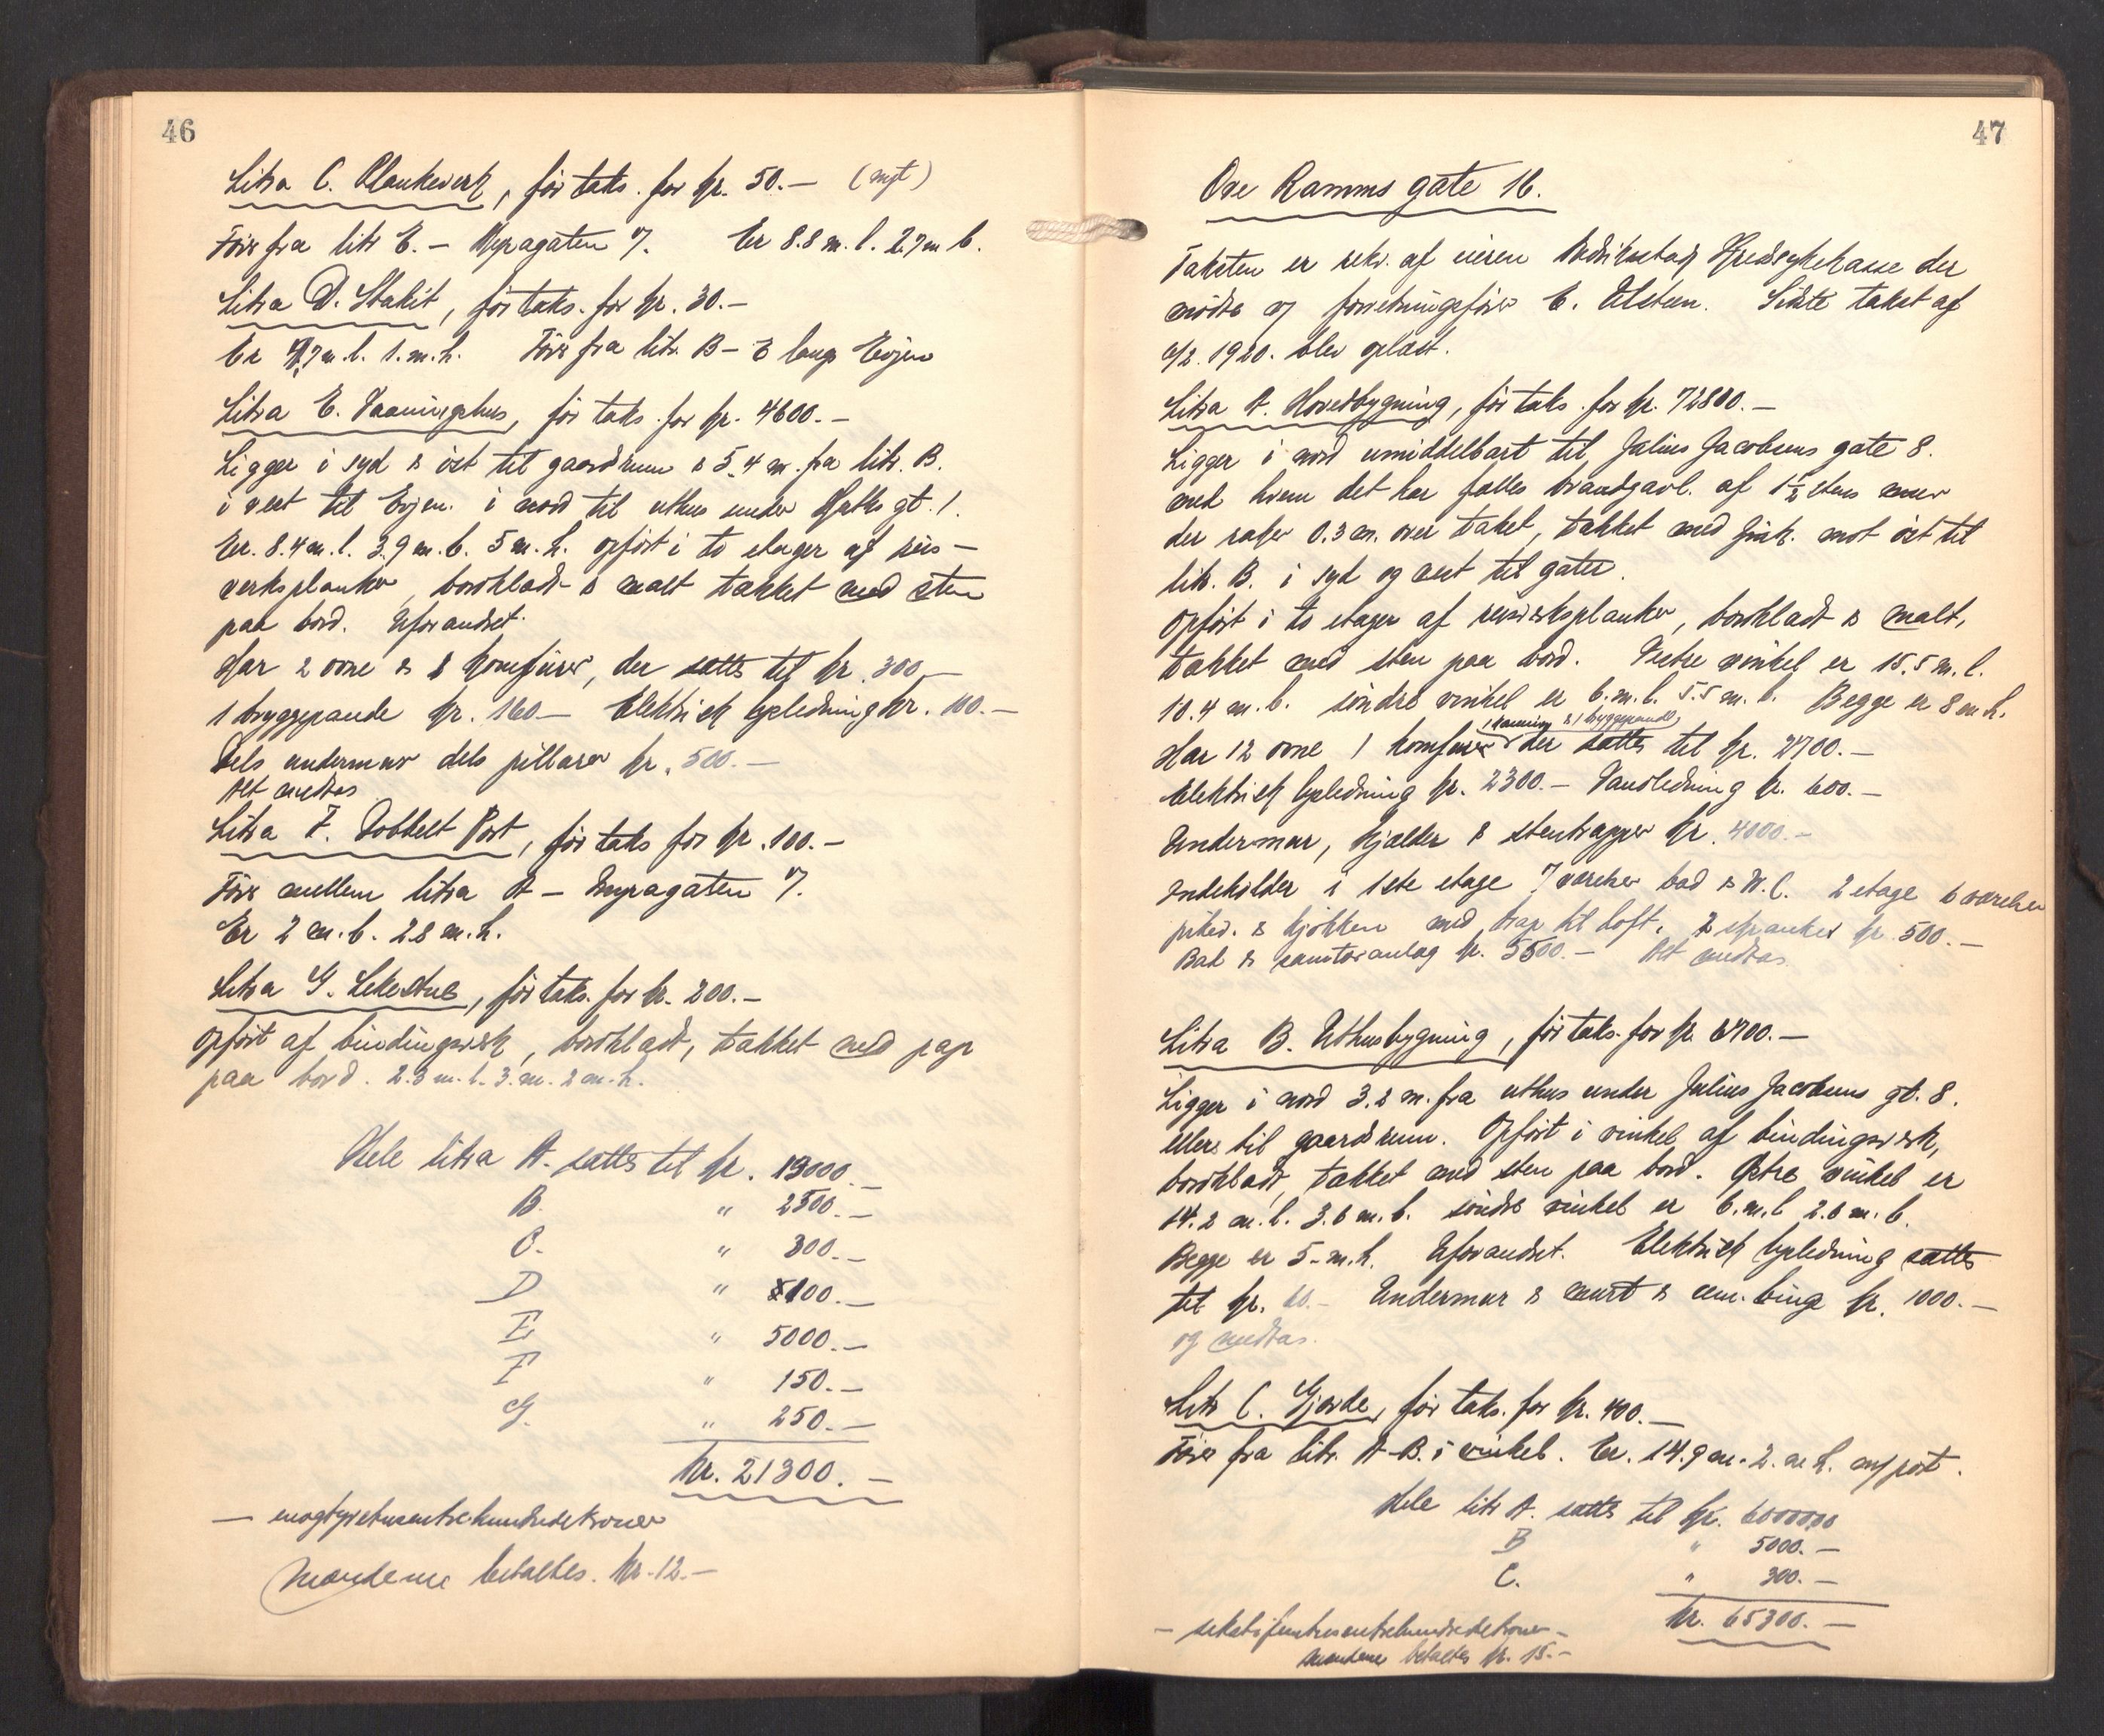 46
Litra C. Plankeverk, før taks. for kr. 50.— (nyt)
Förer fra litr E. — Myragaten 7. Er 8.8 m. l. 2.7 m b.
Litra D. Stakit, før taks. for kr. 30.—
Er 4,7 m. l. 1. m. h. Förer fra litr. B — E langs Evjen
Litra E. Vaaningshus, før taks. for kr. 4600.—
Ligger i syd & øst til gaardsrum & 5.4 m. fra litr. B.
i vest til Evjen. i nord til uthus under gt. 1.
Er. 8.4 m. l. 3.9 m. b. 5 m. h. opført i to etager af reis—
verksplanker, bordklædt & malt tækket med sten
paa bord. Uforandret.
Har 2 ovne & 2 komfurer, der sættes til kr. 300.—
1 bryggepande kr. 160— Elektrisk lysledning kr. 100.—
Dels undermur dels pillarer kr. 500.—
Alt medtas
Litra F. Dobbelt Port, før taks for kr. 100.—
Förer mellem litra A — Myragaten 7.
Er 2 m. b. 2.8 m. h.
Litra G. Lekestue, før taks. for kr. 200.—
opført af bindingsverk, bordklædt, tækket med pap
paa bord. 2.3 m. l. 3. m. 2 m. h.
Hele litra A. sættes til kr. 13000.—
B. " 2500.—
C. " 300.—
D " 100.—
E " 5000.—
F " 150.—
G. " 250.—
kr. 21300.—
— enogtyvetusentrehundredekroner
Mændene betaltes. kr. 12.—
47
Ove Ramms gate 16.
Taksten er rekv. af eieren Fredrikstad Kredssykekasse der
mødte v/ forretningsfører E. Elsteen. Sidste takst af
6/2. 1920. blev oplæst.
Litra A. Hovedbygning, før taks. for kr. 72800.—
Ligger i nord umiddelbart til Julius Jacobsens gate 8.
med hvem det har fælles brandgavl. af 1½ stens mur
der rager 0.3 m. over taket, tækket med zink. mot øst til
litr. B. i syd og vest til gater.
Opført i to etager af reisverksplanker, bordklædt & malt,
tækket med sten paa bord. Vestre vinkel er 15.5 m. l.
10.4 m. b. søndre vinkel er 6. m. l. 5.5 m. b. Begge er 8 m h.
& 1 bryggepande
Har 12 ovne 1 komfur der sættes til kr. 2700.—
Elektrisk lysledning kr. 2300.— Vandledning kr. 600.—
Undermur, kjælder & stentrapper kr. 4000.—
Indeholder i 1ste etage 7 værelser bad & W.C. 2 etage 6 værelser
& kjøkken med trap til loft. 2 skranker kr. 500.—
Bad & sanitæranlæg kr. 5500.— Alt medtas
Litra B. Uthusbygning, før taks. for kr. 6700.—
Ligger i nord 3.2 m. fra uthus under Julius Jacobsens gt. 8.
ellers til gaardsrum. Opført i vinkel af bindingsverk,
bordklædt, tækket med sten paa bord. Østre vinkel er
14.2 m. l. 3.6 m. b. søndre vinkel er 6. m. l 2.6 m. b.
Begge er 5. m. h. Uforandret. Elektrisk lysledning sættes
til kr. 60.— Undermur & muret & cem. binge kr. 1000.—
og medtas.
Litr C. Gjerde, før taks. for kr. 400.—
Förer fra litr. A-B. i vinkel. Er. 14.9 m. 2. m h. m/ port.
Hele litr A. sættes til kr. 60000,00
B " 5000.—
C. " 300.—
kr. 65300.—
— sekstifemtusentrehundredekroner —
Mændene betaltes kr. 15.—